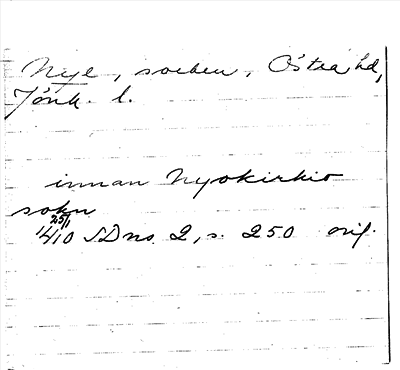 Nye, socken, Östra hd,
Jönk. l.
innan Nyokirkio
sokn
25/1
1410 SDns 2, s. 250 orig.